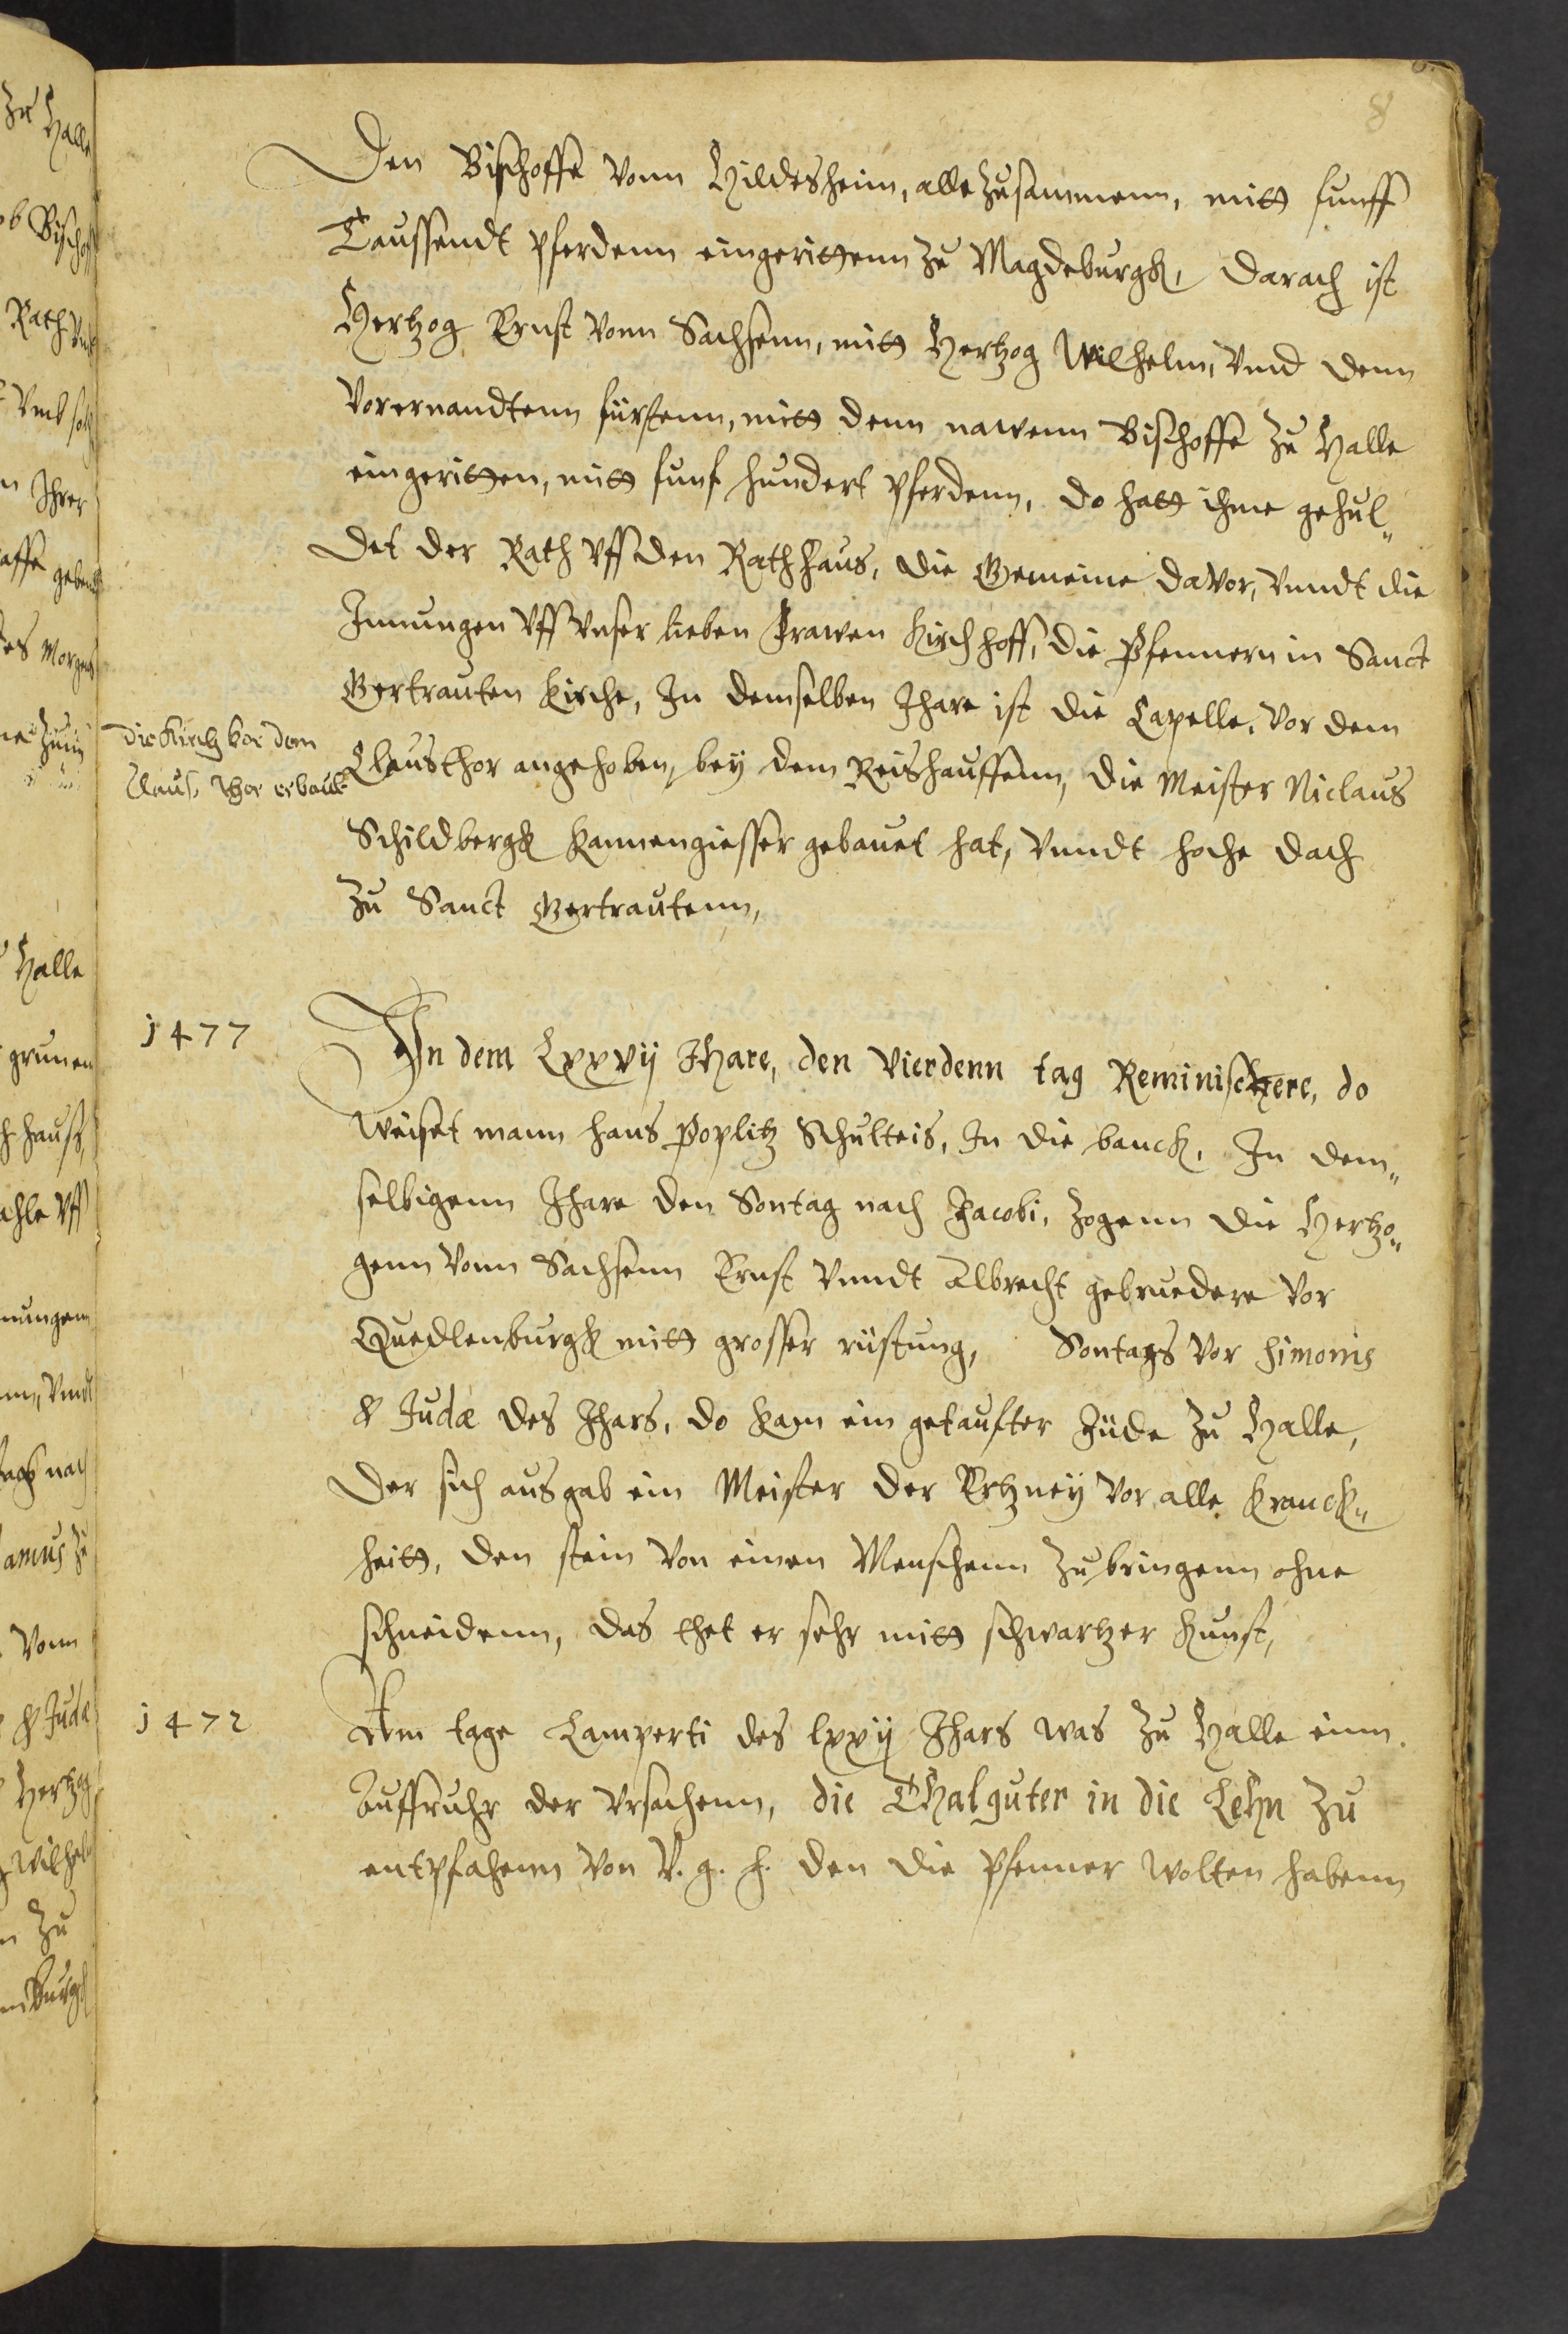 8
Den Bischoffe vonn Hildesheim, alle zusammenn, mitt funff
Taussendt pferdenn eingerittenn zu Magdeburgk, darach ist
Hertzog Ernst vonn Sachsenn, mitt Hertzog Wilhelm, vnnd denn
vorernandtenn fürstenn, mitt denn nawenn Bischoffe zu Halle
eingeritten, mitt funf hundert pferdenn, do hatt ihme gehul„
det der Rath vff den Rathhaus, die Gemeine davor, vnndt die
Innungen vff vnser lieben Frawen Kirchhoff, die Pfennern in Sanct
Gertrauten Kirche, In demselben Jhare ist die Capelle, vor dem
die Kirch vor dem
Claus thor erbaut
Clausthor angehoben, bey dem Reishauffenn, die Meister Niclaus
Schildbergk Kannengiesser gebauet hat, vnndt hoche dach
zu Sanct Gertrautenn,
1477
In dem Lxxvij Jhare, den vierdenn tag Reminiscere, do
weiset mann hans Poplitz Schulteis, In die banck, In dem„
selbigenn Jhare den Sontag nach Jacobi, zogenn die Hertzo„
genn vonn Sachsenn Ernst vnndt Albrecht gebruedere vor
Quedlenburgk mitt grosser rüstung, Sontags vor Simonis
& Judæ des Jhars, do kam ein getaufter Jüde zu Halle,
der sich ausgab ein Meister der Ertzney vor alle Kranck„
heitt, den stein von einen Menschenn zu bringenn ohne
schneidenn, das thet er sehr mitt schwartzer Kunst,
1472
Am tage Lamperti des lxxij Jhars was zu Halle einn
Auffruhr der vrsachenn, die Thalguter in die Lehn zu
entpfahenn von V. g. h. den die Pfenner wolten habenn